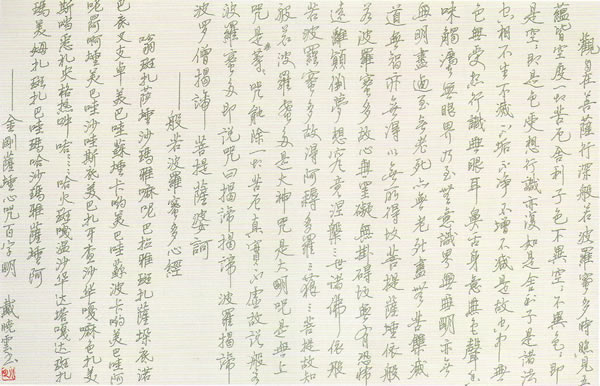 觀自在菩薩行深般若波羅蜜多時照見五
蘊皆空度一切苦厄舍利子色不異空;不異色;即
是空;即是色受想行識亦復如是舍利子是諸法
空相不生不滅不垢不淨不增不減是故空中無
色無受想行識無眼耳鼻舌身意無色聲香
味觸法無眼界乃至無意識界無無明亦無
無明盡乃至無老死亦無老死盡無苦集滅
道無智亦無得以無所得故菩提薩埵依般
若波羅蜜多故心無罣礙無掛碍故無有恐怖
遠離顛倒夢想究竟涅槃三世諸佛依般
若波羅蜜多故得阿耨多羅三藐三菩提故知
般若波羅蜜多是大神咒是大明咒是無上
咒是無等;咒能除一切苦厄真實不虛故說般若
波羅蜜多即說咒曰揭諦揭諦波羅揭諦
波罗僧揭諦 菩提薩婆訶
——般若波羅蜜多心經
嗡班扎薩埵沙瑪雅嘛呢巴拉雅班扎薩埵底諾
巴底叉支卓美巴哇蘇埵卡喲美巴哇蘇波卡喲美巴哇阿
呢阿啊埵美巴哇沙哇斯底美巴扎耳查沙哇嘎嘛色扎美
斯噹惡礼央格想吽哈哈哈哈火班嘎溫沙哇达塔嘎达班扎
瑪美姆扎班扎巴哇瑪哈沙瑪雅薩埵阿
——金剛薩埵心咒百字明 戴曉雲